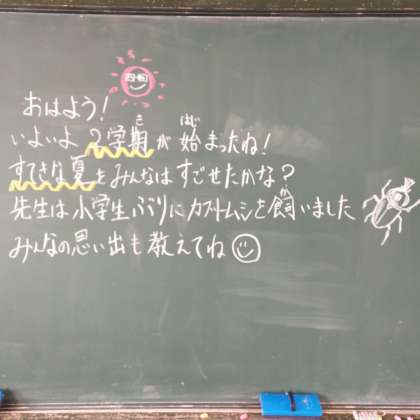 おはよう!
いよいよ 2学期が 始まったね!
すてきな夏をみんなは すごせたかな?
先生は 小学生ぶりに カブトムシを 飼いました
みんなの思い出も 教えてね